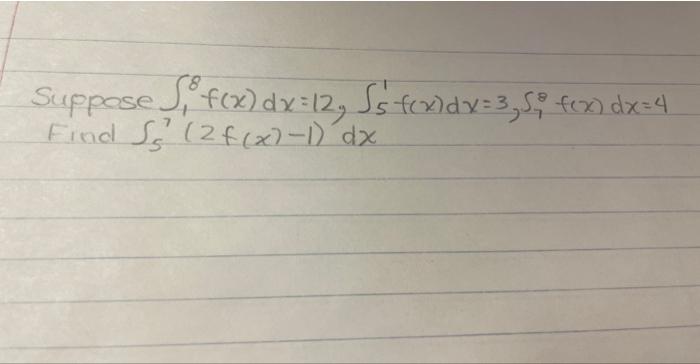 Suppose ∫₁⁸ f(x) dx = 12, ∫₅¹ f(x) dx = 3, ∫₇⁸ f(x) dx = 4
Find ∫₅⁷ (2f(x) - 1) dx